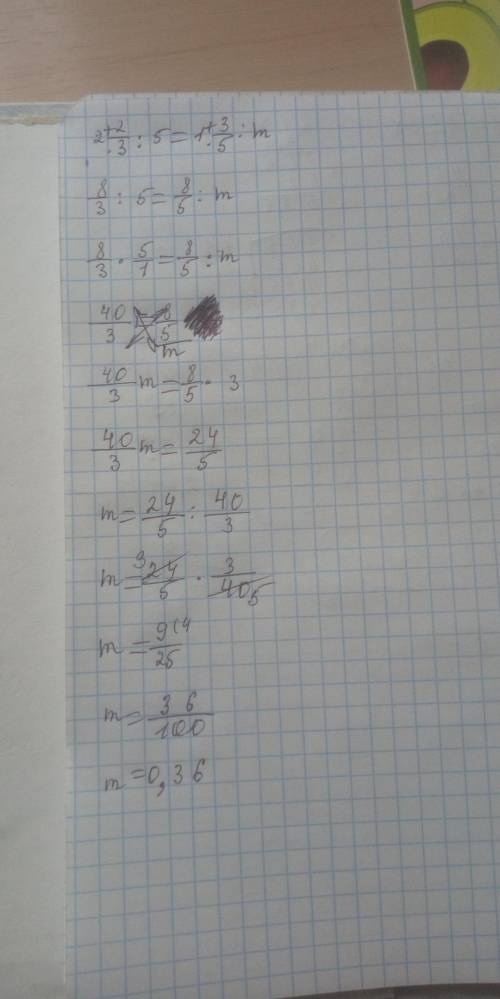 2 2/3 : 5 = 1 3/5 : m
8/3 : 5 = 8/5 : m
8/3 · 5/1 = 8/5 : m
40/3 = 8/5/m
40/3 m = 8/5 · 3
40/3 m = 24/5
m = 24/5 : 40/3
m = 3 24/5 · 3/40 5
m = 9(4/25
m = 36/100
m = 0,36